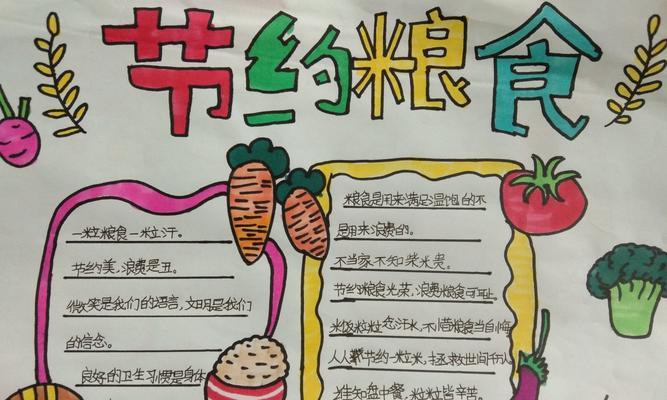 节约粮食
一粒粮食一粒汗。
节约美，浪费是丑。
微笑是我们的语言，文明是我们
的信念。
良好的卫生习惯是身体
粮食是用来满足温饱的不
是用来浪费的。
不当家不知柴米贵。
节约粮食光荣，浪费粮食可耻
米饭粒粒念汗水，不惜粮食当自悔
人人节约一粒米，拯救世间千万人
谁知盘中餐，粒粒皆辛苦。